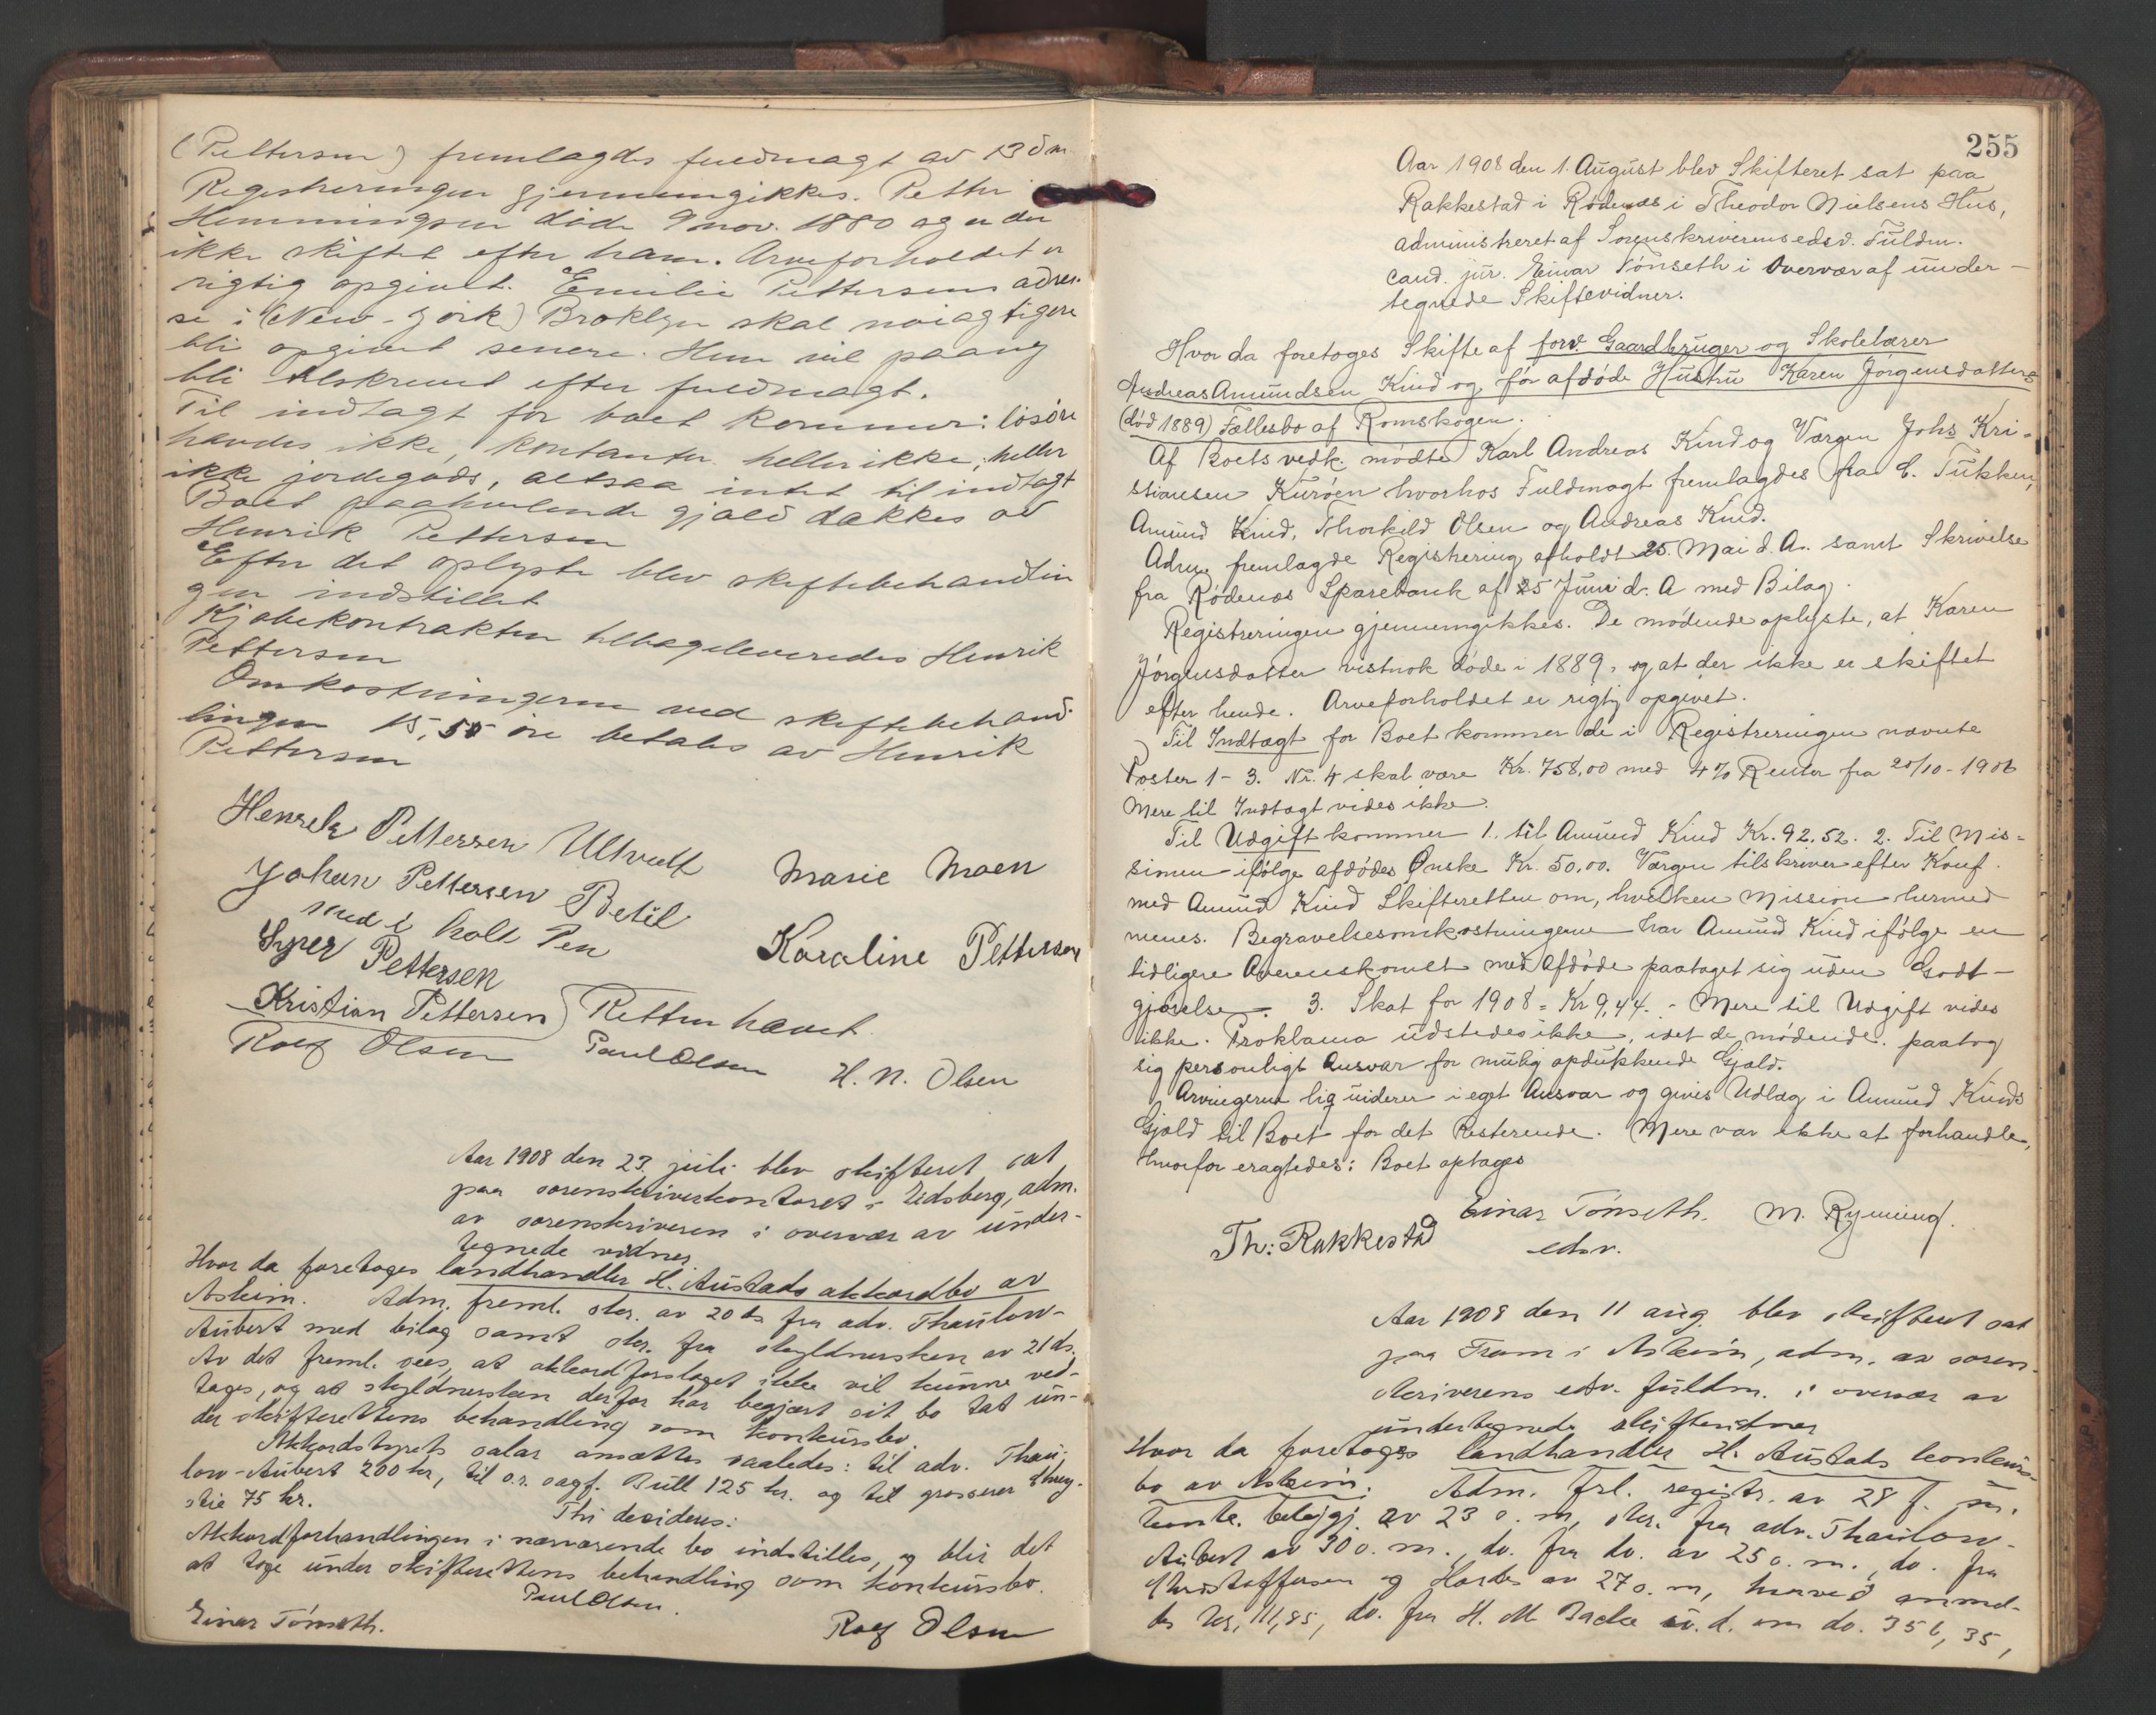 (Pettersen) fremlagdes fuldmagt av 13 dm
Registreringen gjennemgikkes. Petter
Hemmingsen døde 9 nov. 1880 og er der
ikke skiftet efter ham. Arveforholdet er
rigtig opgivet. Emilie Pettersens adres-
se i (New-York) Broklyn skal nøiagtigere
bli opgivet senere. Hun vil paany
bli tilskrevet efter fuldmagt.
Til indtagt for boet kommer: løsøre
havdes ikke, kontanter heller ikke, heller
ikke jordegods, altsaa intet til indtagt
Boet paahvilende gjæld dækkes av
Henrik Pettersen
Efter det oplyste blev skiftebehandlin
gen indstillet
Kjøbekontrakten tilbageleveredes Henrik
Pettersen
Omkostningerne ved skiftebehand-
lingen 15,55 øre betales av Henrik
Pettersen
Henrik Pettersen Ultvedt
Marie Moen
Johan Pettersen Betil
med i holt Pen
Karaline Pettersen
Syver Pettersen
Kristian Pettersen) Retten hævet.
Rolf Olsen Paul Olsen H. N. Olsen
Aar 1908 den 23. juli blev skifteret sat
paa sorenskriverkontoret i Eidsberg, adm.
av sorenskriveren i overvær av under-
tegnede vidner
Hvor da foretoges landhandler H. Austads akkordbo av
Askim. Adm. freml. skr. av 20 ds fra adv. Thaulow-
Aubert med bilag samt skr. fra skyldnersken av 21 ds.
Av det freml. sees, at akkordforslaget ikke vil kunne ved-
tages, og at skyldnersken derfor har begjært sit bo tat un-
der skifterettens behandling som konkursbo.
Akkordstyrets salær ansættes saaledes: til adv. Thau-
low-Aubert 200 kr, til o.r. sagf. Bull 125 kr. og til grosserer
stie 75 kr.
Thi decideres:
Akkordforhandlingen i nærværende bo indstilles, og blir det
at tage under skifterettens behandling som konkursbo.
Paul Olsen.
Einar Tønseth. Rolf Olsen
255
Aar 1908 den 1. August blev Skifteret sat paa
Rakkestad i Rødenæs i Theodor Nielsens Hus,
administreret af Sorenskriverens edsv. Fuldm.
cand. jur. Einar Tønseth i Overvær af under-
tegnede Skiftevidner.
Hvor da foretoges Skifte af forv. Gaardbruger og Skolelærer
Andreas Amundsen Kind og før afdøde Hustru Karen Jørgensdatters
(død 1889) Fællesbo af Romskogen.
Af Boets vedk. mødte Karl Andreas Kind og Værgen Johs Kri-
stiansen Kurøen hvorhos Fuldmagt fremlagdes fra C. Tukken,
Amund Kind, Thorkild Olsen og Andreas Kind.
Adm. fremlagde Registrering afholdt 25. Mai d. A. samt Skrivelse
fra Rødenæs Sparebank af 25 Juni d. A med Bilag.
Registreringen gjennemgikkes. De mødende oplyste, at Karen
Jørgensdatter vistnok døde i 1889, og at der ikke er skiftet
efter hende. Arveforholdet er rigtig opgivet.
Til Indtægt for Boet kommer de i Registreringen nævnte
Poster 1-3. Nr. 4 skal være Kr. 758,00 med 4% Renter fra 20/10-1906
Mere til Indtægt vides ikke.
Til Udgift kommer 1. til Amund Kind Kr. 92.52. 2. Til Mis-
sionen ifølge afdødes Ønske Kr. 50,00. Værgen tilskriver efter Konf.
med Amund Kind Skifteretten om, hvilken Mission hermed
menes. Begravelsesomkostningerne har Amund Kind ifølge en
tidligere Overenskomst med Afdøde paataget sig uden Godt-
gjørelse. 3. Skat for 1908 = Kr 9,44. - Mere til Udgift vides
ikke. Proklama udstedes ikke, idet de mødende paatog
sig personligt Ansvar for mulig opdukkende Gjæld.
Arvingerne liquiderer i eget Ansvar og gives Udlæg i Amund Kinds
Gjæld til Boet for det Resterende. Mere var ikke at forhandle,
hvorfor eragtedes: Boet optages
Einar Tønseth. M. Rymning.
Th: Rakkestad edsv.
Aar 1908 den 11 aug. blev skifteret sat
paa Fram i Askim, adm. av soren-
skriverens edsv. fuldm. i overvær av
undertegnede skiftevidner
Hvor da foretoges landhandler H. Austads konkurs-
bo av Askim. Adm. frl. registr. av 28 f. m.
kontr. beløjgj. av 23 s. m, skr. fra adv. Thaulow-
Aubert av 30 s. m., do. fra do. av 25 s. m., do. fra
Kristoffersen og Hardes av 27 s. m, hvorved anmel-
des kr. 111,85, do. fra H. M. Backe u. d. om do. 356,35,